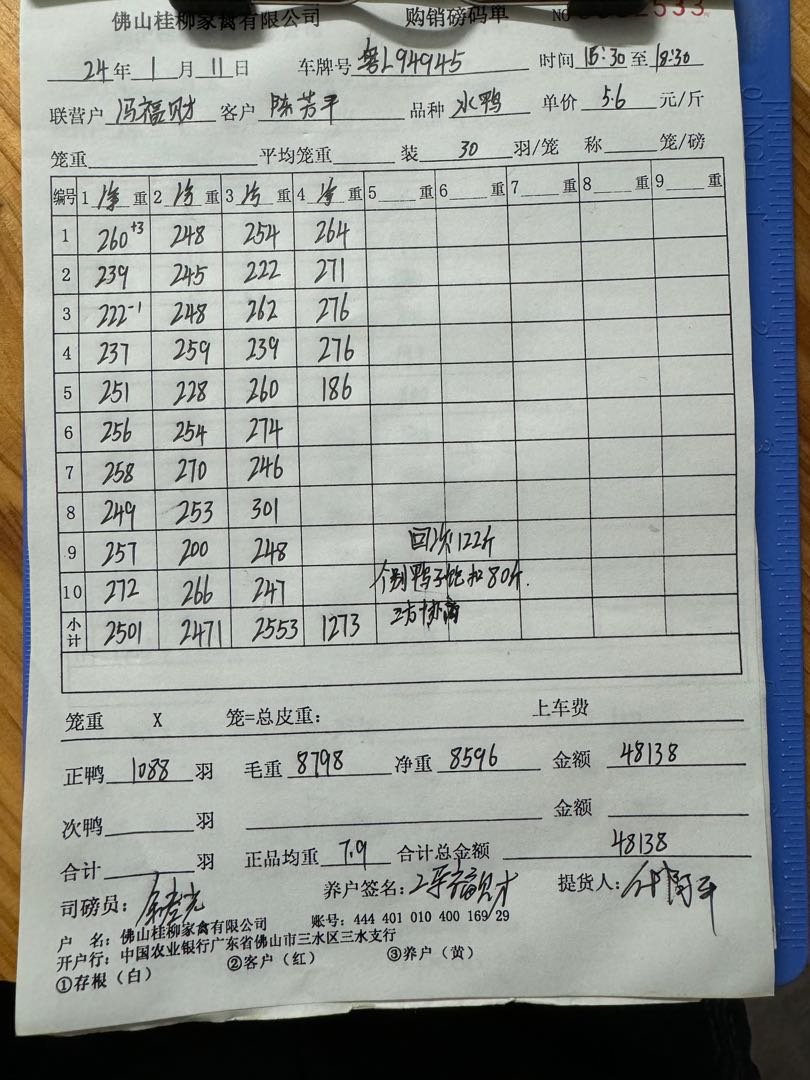 佛山桂柳家禽有限公司 购销磅码单 NO 2533
24年1月11日 车牌号 粤L94945 时间 15:30 至 18:30
联营户 冯福财 客户 陈芳平 品种 水鸭 单价 5.6 元/斤
笼重 平均笼重 装 30 羽/笼 称 笼/磅
编号 1 净 重 2 净 重 3 净 重 4 净 重 5 重 6 重 7 重 8 重 9 重
1 260+3 248 254 264
2 239 245 222 271
3 222-1 248 262 276
4 237 259 239 276
5 251 228 260 186
6 256 254 274
7 258 270 246
8 249 253 301
9 257 200 248 回次122斤
10 272 266 247 个别鸭子饱扣80斤.
小计 2501 2471 2553 1273 三方协商
笼重 X 笼=总皮重: 上车费
正鸭 1088 羽 毛重 8798 净重 8596 金额 48138
次鸭 羽 金额
合计 羽 正品均重 7.9 合计总金额 48138
司磅员: 养户签名: 冯福财 提货人:
户 名: 佛山桂柳家禽有限公司 账号: 444 401 010 400 169 29
开户行: 中国农业银行广东省佛山市三水区三水支行
①存根（白） ②客户（红） ③养户（黄）